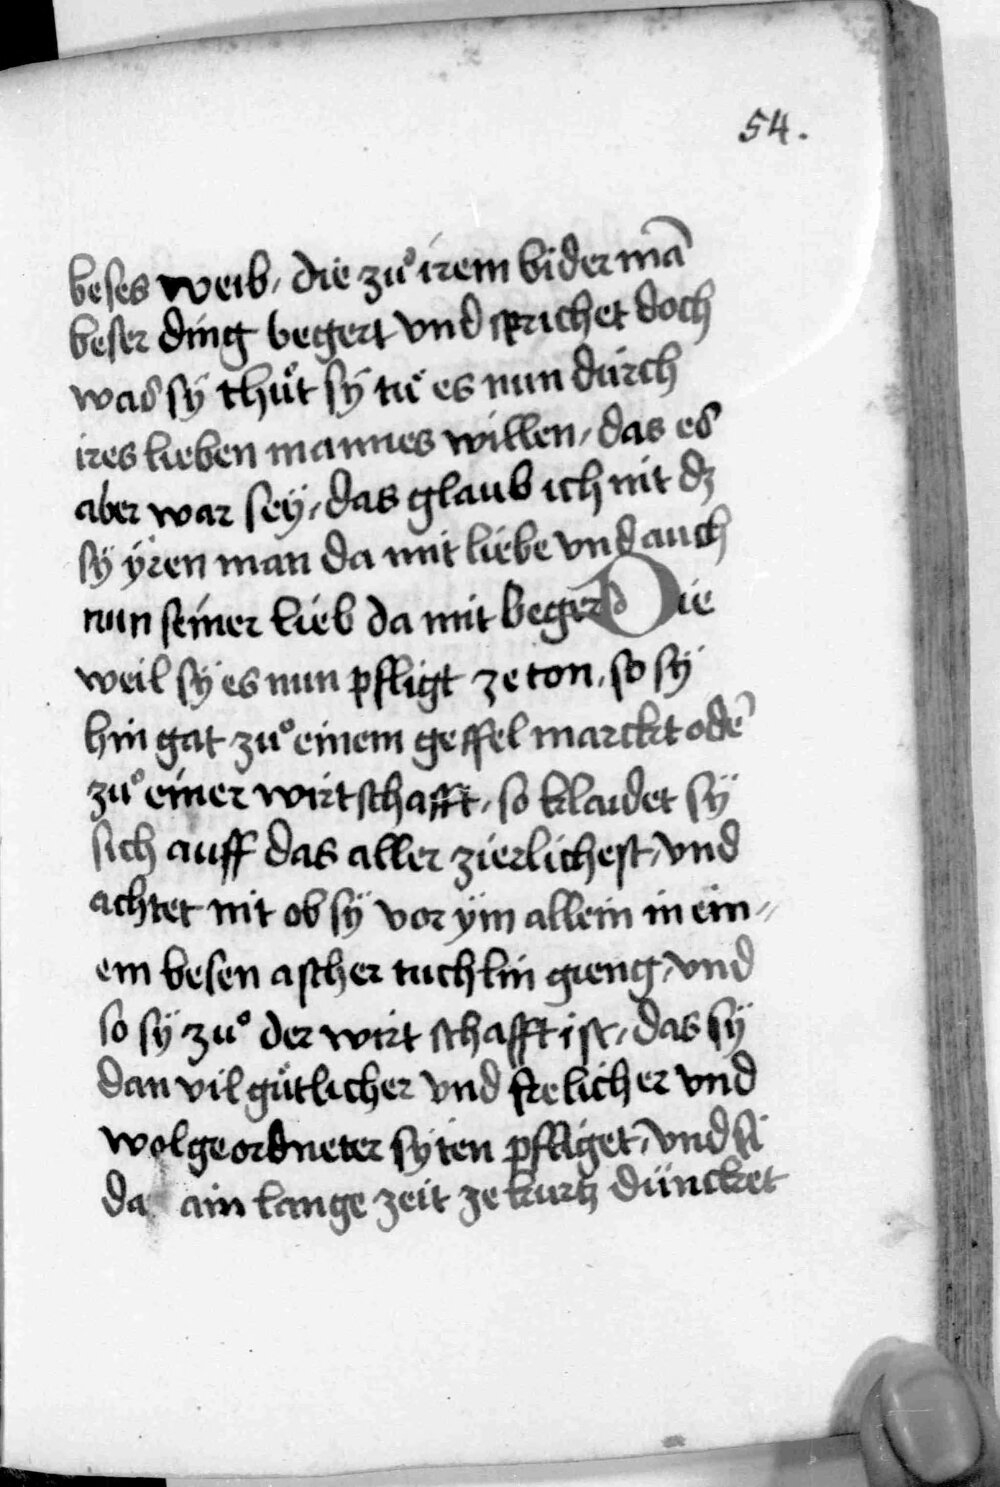 54.
beses weib, die zuͦ irem biderman̄
beser ding begert vnd sprichet doch
was sÿ thuͤt sÿ tuͤ es nun durch
ires lieben mannes willen, das es
aber war seÿ, das glaub ich nit dz
sÿ ÿren man da mit liebe vnd auch
nun seiner lieb da mit beger Die
weil sÿ es nun pfligt ze ton, so sÿ
hin gat zuͦ einem geffel marckt odeʳ
zuͦ einer wirtschafft, so klaidet sÿ
sich auff das aller zierlichest, vnd
achtet nit ob sÿ vor ÿm allein in ein⸗
em besen ascher tuchlin gieng, vnd
so sÿ zuͦ der wirt schafft ist, das sÿ
dan vil guͤtlicher vnd frelicher vnd
wolgeordneter syten pffliget, vnd si
da ain lange zeit ze kurtz düncket